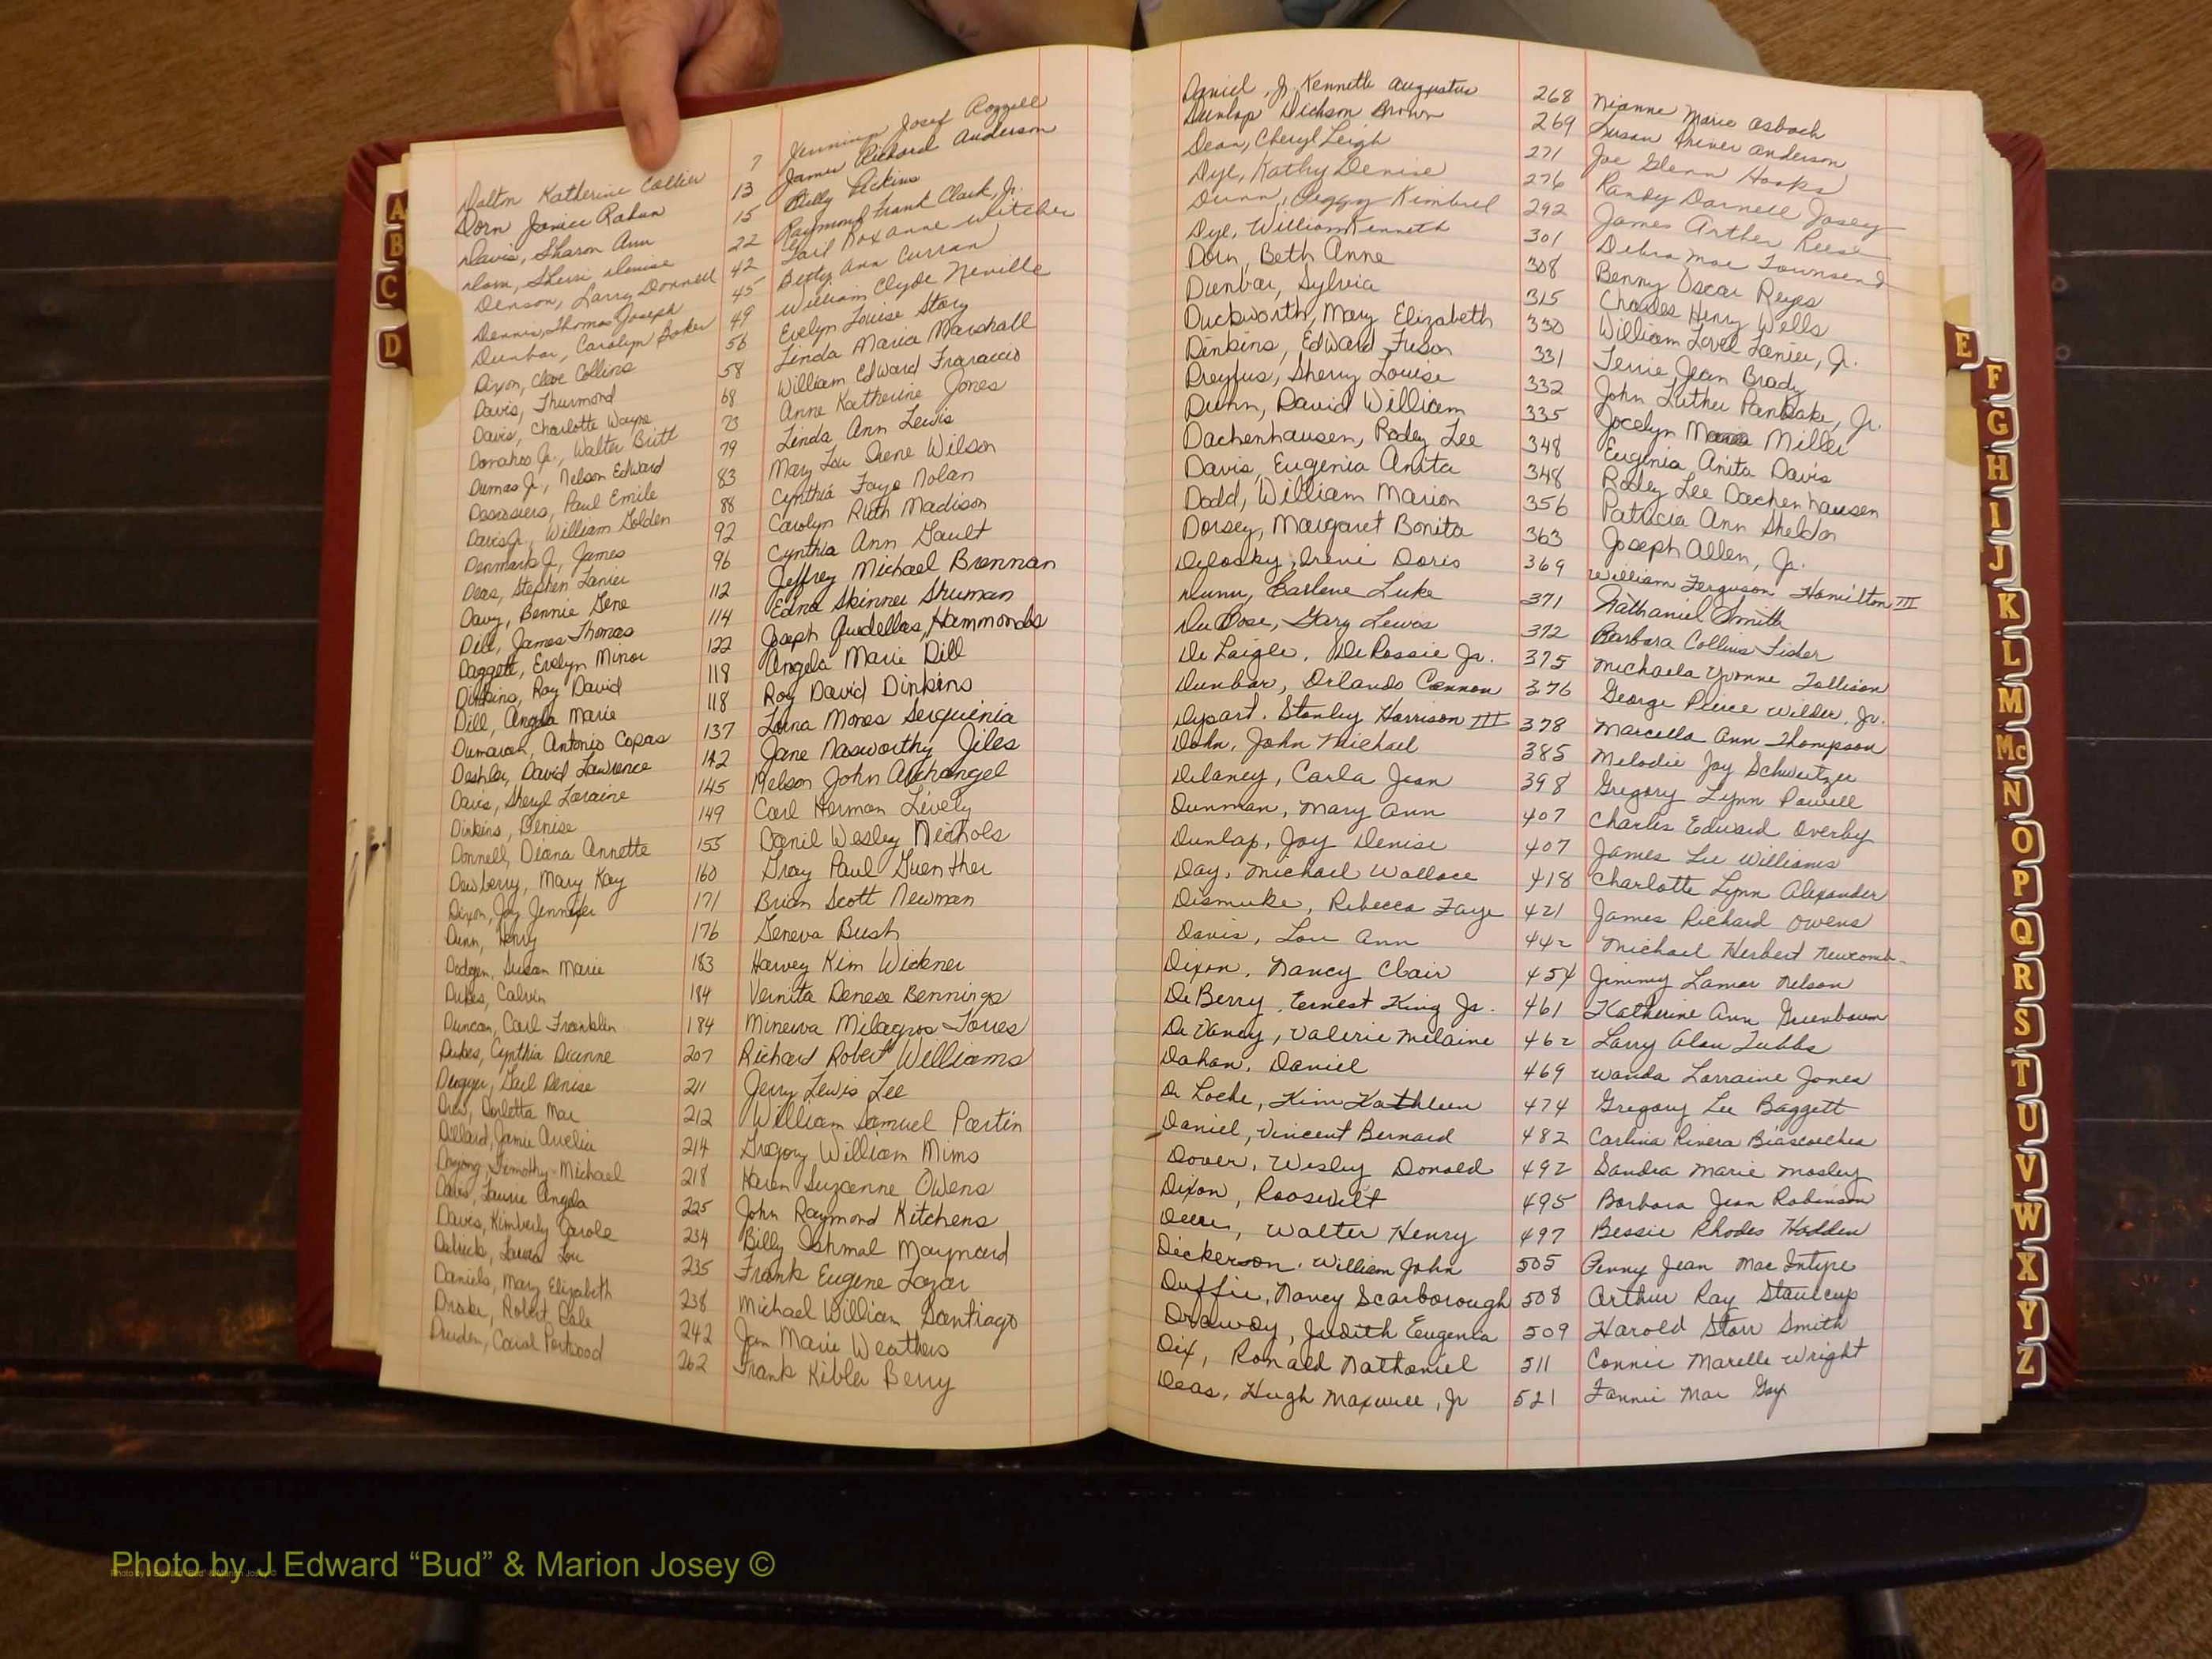 Dalton Katherine Collier 7 Jennings Josef Rozzell
Dorn Janice Rahun 13 James Richard Anderson
Davis, Sharon Ann 15 Billy Dickins
Dom, Sherri Denise 22 Raymond Frank Clark, Jr.
Denson, Larry Donnell 42 Gail Roxanne Witcher
Dennis, Thomas Joseph 45 Betty Ann Curran
Dunbar, Carolyn Baker 49 William Clyde Neville
Dixon, Cleve Collins 56 Evelyn Louise Story
Davis, Thurmond 58 Linda Maria Marshall
Davis, Charlotte Wayne 68 William Edward Fraraccio
Donahoo Jr., Walter Britt 73 Anne Katherine Jones
Dumas Jr., Nelson Edward 79 Linda Ann Lewis
Desrosiers, Paul Emile 83 Mary Lou Irene Wilson
Davis Jr., William Golden 88 Cynthia Faye Nolan
Denmark Jr., James 92 Carolyn Ruth Madison
Deas, Stephen Lanier 96 Cynthia Ann Gault
Davy, Bennie Gene 112 Jeffrey Michael Brennan
Dill, James Thomas 114 Edna Skinner Shuman
Daggett, Evelyn Minor 122 Joseph Guidellas Hammonds
Dinkins, Roy David 118 Angela Marie Dill
Dill, Angela Marie 118 Roy David Dinkins
Dumarah, Antonio Copas 137 Lorna Mones Serquinia
Deshler, David Lawrence 142 Jane Nasworthy Jiles
Davis, Sheryl Loraine 145 Nelson John Archangel
Dinkins, Denise 149 Carl Herman Lively
Donnell, Diana Annette 155 Danil Wesley Nichols
Dewberry, Mary Kay 160 Gray Paul Guenther
Dixon, Joy Jennifer 171 Brian Scott Newman
Dunn, Henry 176 Geneva Bush
Dodgen, Susan Marie 183 Harvey Kim Wickner
Dukes, Calvin 184 Vernita Denese Bennings
Duncan, Carl Franklin 184 Minerva Milagros Torres
Dukes, Cynthia Dianne 207 Richard Robert Williams
Dugger, Gail Denise 211 Jerry Lewis Lee
Drew, Dorletta Mae 212 William Samuel Partin
Dillard, Jamie Aurelia 214 Gregory William Mims
Timothy Michael 218 Karen Suzanne Owens
Davis, Laurie Angela 225 John Raymond Kitchens
Davis, Kimberly Carole 234 Billy Ishmal Maynard
Laura Lou 235 Frank Eugene Lazar
Daniels, Mary Elizabeth 238 Michael William Santiago
Drake, Robert Dale 242 Jan Marie Weathers
Durden, Carol Portwood 262 Frank Kibler Berry
Daniel, Jr. Kenneth Augustus 268 Nianne Marie Asbach
Dunlap Dickson Brown 269 Susan Driver Anderson
Dean, Cheryl Leigh 271 Joe Glenn Hooks
Dye, Kathy Denise 276 Randy Darnell Josey
Dunn, Peggy Kimbrel 292 James Arther Reese
Dye, William Kenneth 301 Debra Mae Townsend
Dorn, Beth Anne 308 Benny Oscar Reyes
Dunbar, Sylvia 315 Charles Henry Wells
Duckworth, Mary Elizabeth 330 William Lovel Lanier, Jr.
Dinkins, Edward Fuson 331 Terrie Jean Brady
Dreyfus, Sherry Louise 332 John Luther Panbake, Jr.
Dunn, David William 335 Jocelyn Maria Miller
Dachenhausen, Rodey Lee 348 Eugenia Anita Davis
Davis, Eugenia Anita 348 Rodey Lee Dachenhausen
Dodd, William Marion 356 Patricia Ann Sheldon
Dorsey, Margaret Bonita 363 Joseph Allen, Jr.
Dylosky, Irene Doris 369 William Ferguson Hamilton III
Dunn, Earlene Luke 371 Nathaniel Smith
Du Bose, Gary Lewis 372 Barbara Collins Fisher
De Laigle, DeRossie Jr. 375 Michaela Yvonne Tollison
Dunbar, Orlando Cannon 376 George Pierce Wilder, Jr.
Dysart, Stanley Harrison III 378 Marcella Ann Thompson
Dohn, John Michael 385 Melodie Joy Schweitzer
Delaney, Carla Jean 398 Gregory Lynn Powell
Dunman, Mary Ann 407 Charles Edward Overby
Dunlap, Joy Denise 407 James Lee Williams
Day, Michael Wallace 418 Charlotte Lynn Alexander
Dismuke, Rebecca Faye 421 James Richard Owens
Davis, Lou Ann 442 Michael Herbert Newcomb
Dixon, Nancy Clair 454 Jimmy Lamar Nelson
De Berry, Ernest King Jr. 461 Katherine Ann Greenbaum
De Vaney, Valerie Melaine 462 Larry Alan Tubbs
Dahan, Daniel 469 Wanda Lorraine Jones
De Loche, Kim Kathleen 474 Gregory Lee Baggett
Daniel, Vincent Bernard 482 Carlina Rivera Biascoechea
Dover, Wesley Donald 492 Sandra Marie Mosley
Dixon, Roosevelt 495 Barbara Jean Robinson
Deere, Walter Henry 497 Bessie Rhodes Hadden
Dickerson, William John 505 Penny Jean MacIntyre
Duffie, Nancy Scarborough 508 Arthur Ray Stallcup
Drawdy, Judith Eugenia 509 Harold Starr Smith
Dix, Ronald Nathaniel 511 Connie Marelle Wright
Deas, Hugh Maxwell, Jr 521 Fannie Mae Gay
A
B
C
D
E
F
G
H
I
J
K
L
M
Mc
N
O
P
Q
R
S
T
U
V
W
X
Y
Z
Photo by J Edward “Bud” & Marion Josey ©